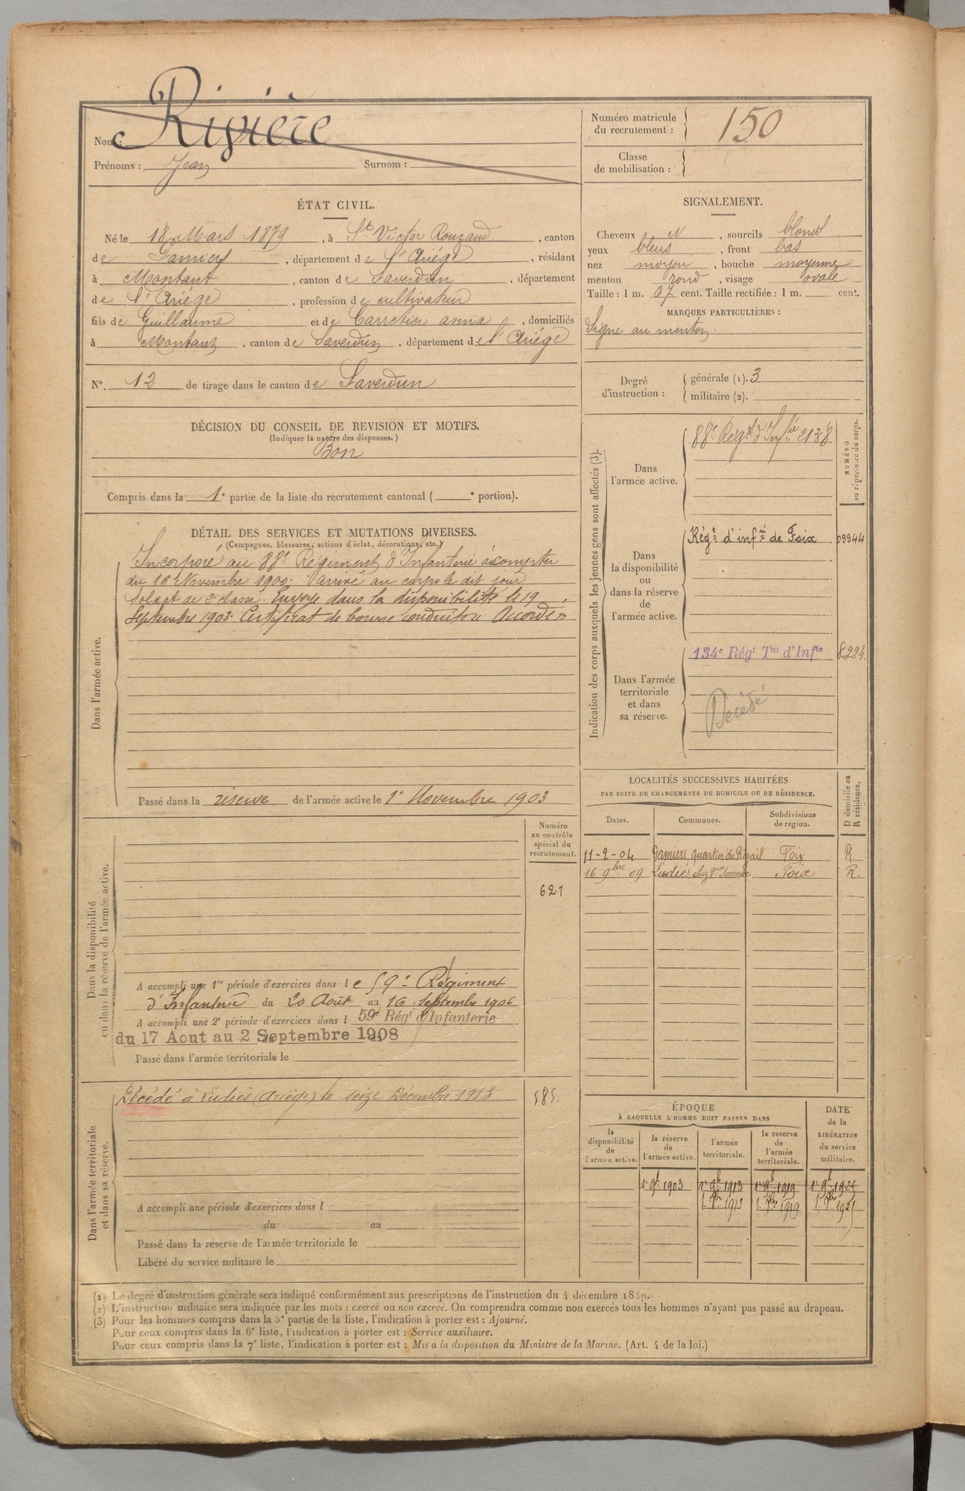 Nom : Rivière
Prénoms : Jean Surnom :
Numéro matricule du recrutement : 150
Classe de mobilisation :
ÉTAT CIVIL.
Né le 18 Mars 1879, à St Victor Rouzaud, canton
de Pamiers, département de l'Ariège, résidant
à Montaut, canton de Saverdun, département
de l'Ariège, profession de cultivateur
fils de Guillaume et de Carretier anna, domiciliés
à Montaut, canton de Saverdun, département de l'Ariège
N°. 12 de tirage dans le canton de Saverdun
DÉCISION DU CONSEIL DE REVISION ET MOTIFS.
(Indiquer la nature des dispenses.)
Bon
Compris dans la 1e partie de la liste du recrutement cantonal ( e portion).
SIGNALEMENT.
Cheveux et, sourcils blond
yeux bleus, front bas
nez moyen, bouche moyenne
menton rond, visage ovale
Taille : 1 m. 67 cent. Taille rectifiée : 1 m. cent.
MARQUES PARTICULIÈRES :
Signe au menton.
Degré d'instruction : générale (1). 3
militaire (2).
DÉTAIL DES SERVICES ET MUTATIONS DIVERSES.
(Campagnes, blessures, actions d'éclat, décorations, etc.)
Dans l'armée active.
Incorporé au 88e Régiment d'Infanterie à compter
du 16 Novembre 1900. Arrivé au corps le dit jour
soldat de 2e classe. Envoyé dans la disponibilité le 19
Septembre 1903. Certificat de bonne conduite Accordé
Passé dans la réserve de l'armée active le 1er Novembre 1903
Indication des corps auxquels les jeunes gens sont affectés (3).
NUMÉRO au répertoire du corps.
Dans l'armée active.
88e Régt d'Infie 2138
Dans la disponibilité ou dans la réserve de l'armée active.
Régt d'infie de Foix 09944
Dans l'armée territoriale et dans sa réserve.
134e Régt Tal d'Infie 8224
Décédé
LOCALITÉS SUCCESSIVES HABITÉES
PAR SUITE DE CHANGEMENTS DE DOMICILE OU DE RÉSIDENCE.
Dates. Communes. Subdivisions de région. D domicile ou R résidence.
11-2-04 Pamiers, quartier du Foix R
16 9bre 09 Ludiès chez Foix R.
Dans la disponibilité ou dans la réserve de l'armée active.
Numéro au contrôle spécial du recrutement.
621
A accompli une 1re période d'exercices dans le 59e Régiment
d'Infanterie du 20 Août au 16 Septembre 1906
A accompli une 2e période d'exercices dans l 59e Régt d'Infanterie
du 17 Aout au 2 Septembre 1908
Passé dans l'armée territoriale le
Dans l'armée territoriale et dans sa réserve.
Décédé à Ludiès (Ariège) le seize Décembre 1913
585.
A accompli une période d'exercices dans l
du au
Passé dans la réserve de l'armée territoriale le
Libéré du service militaire le
ÉPOQUE
À LAQUELLE L'HOMME DOIT PASSER DANS
DATE de la LIBÉRATION du service militaire.
la disponibilité de l'armée active. la réserve de l'armée active. l'armée territoriale. la réserve de l'armée territoriale.
1er 9bre 1903 1er 9bre 1913 1er 9bre 1919 1er 9bre 1921
1913 1919 1921
(1) Le degré d'instruction générale sera indiqué conformément aux prescriptions de l'instruction du 4 décembre 1889.
(2) L'instruction militaire sera indiquée par les mots : exercé ou non exercé. On comprendra comme non exercés tous les hommes n'ayant pas passé au drapeau.
(3) Pour les hommes compris dans la 5e partie de la liste, l'indication à porter est : Ajourné.
Pour ceux compris dans la 6e liste, l'indication à porter est : Service auxiliaire.
Pour ceux compris dans la 7e liste, l'indication à porter est : Mis a la disposition du Ministre de la Marine. (Art. 4 de la loi.)